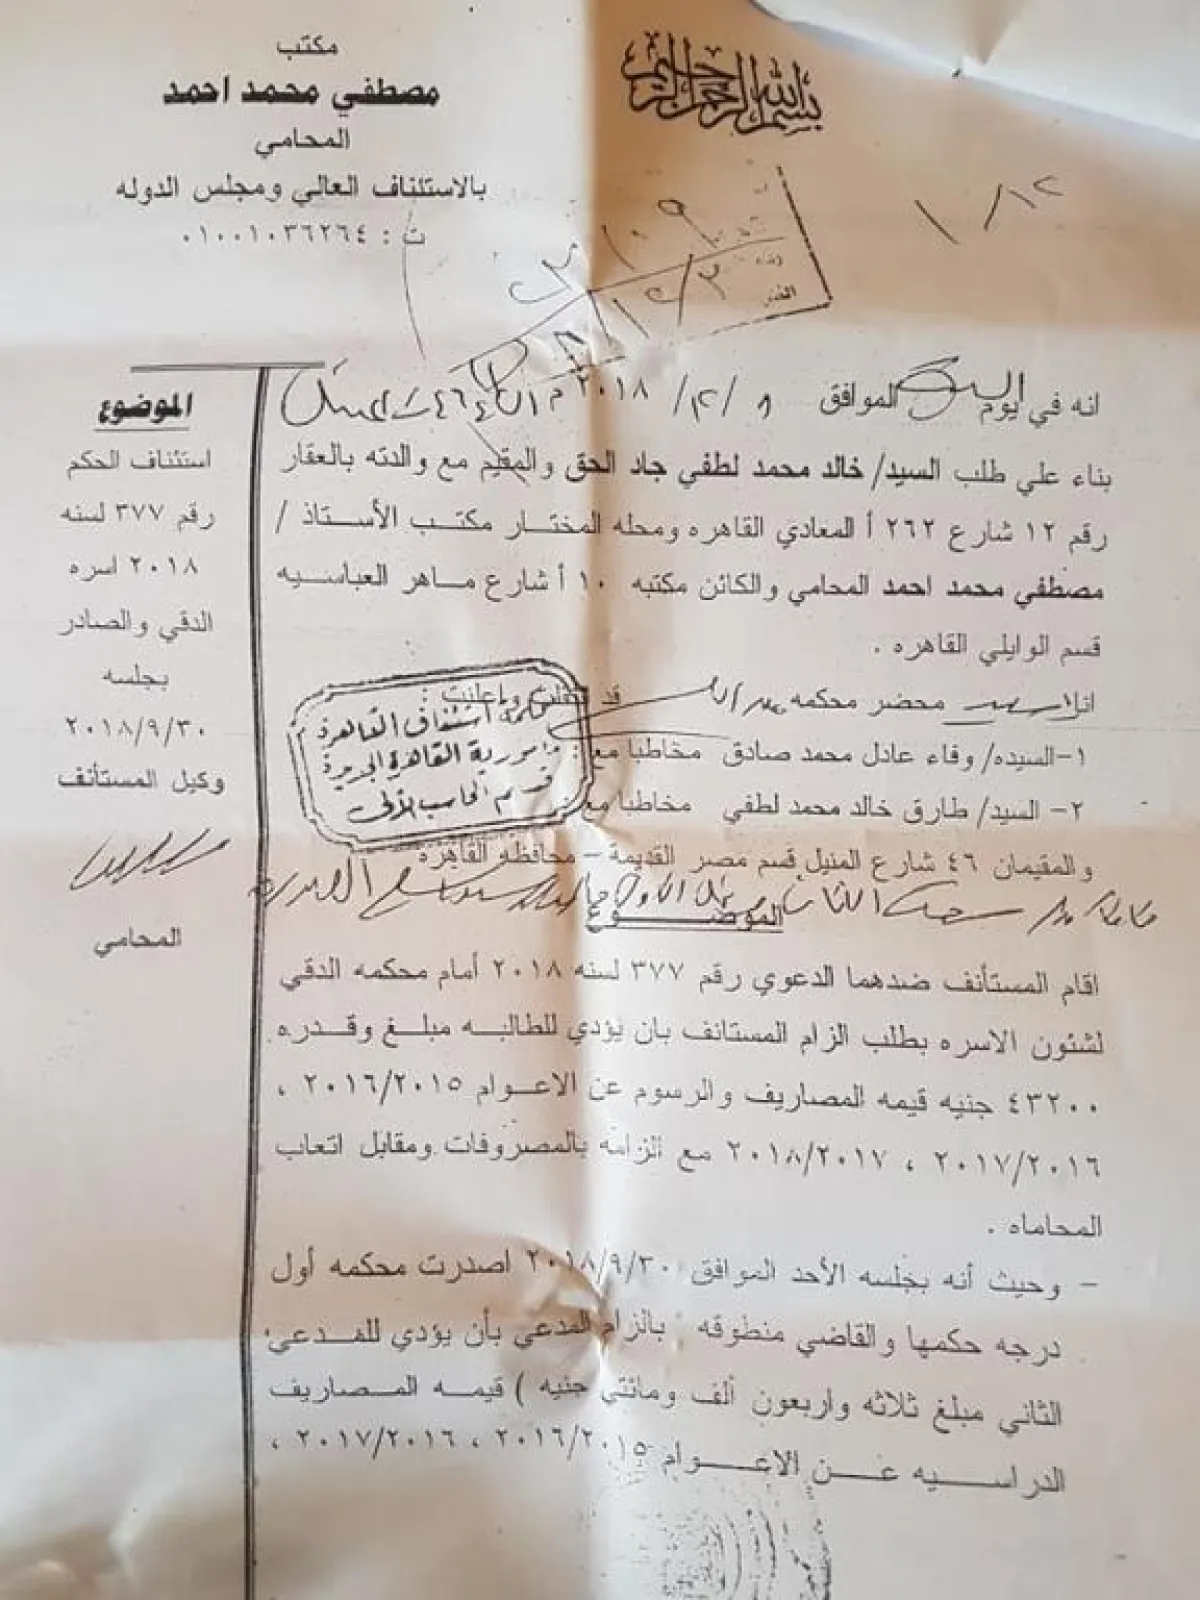 مكتب
مصطفي محمد احمد
المحامي
بالاستئناف العالي ومجلس الدوله
ت : ٠١٠٠١٠٣٦٢٦٤
بسم الله الرحمن الرحيم
١ / ١٢
انه في يوم الموافق ٨ / ١٢ / ٢٠١٨ م
بناء علي طلب السيد/ خالد محمد لطفي جاد الحق والمقيم مع والدته بالعقار
رقم ١٢ شارع ٢٦٢ أ المعادي القاهره ومحله المختار مكتب الأستاذ /
مصطفي محمد احمد المحامي والكائن مكتبه ١٠ أ شارع ماهر العباسيه
قسم الوايلي القاهره .
انا محضر محكمه قد انتقلت واعلنت :
١-السيده/ وفاء عادل محمد صادق مخاطبا مع :
٢- السيد/ طارق خالد محمد لطفي مخاطبا مع
والمقيمان ٤٦ شارع المنيل قسم مصر القديمة – محافظه القاهره
محكمة استئناف القاهرة
مأمورية القاهرة الجديدة
قسم
الموضوع
اقام المستأنف ضدهما الدعوي رقم ٣٧٧ لسنه ٢٠١٨ أمام محكمه الدقي
لشئون الاسره بطلب الزام المستانف بان يؤدي للطالبه مبلغ وقدره
٤٣٢٠٠ جنيه قيمه المصاريف والرسوم عن الاعوام ٢٠١٦/٢٠١٥ ،
٢٠١٧/٢٠١٦ ، ٢٠١٨/٢٠١٧ مع الزامه بالمصروفات ومقابل اتعاب
المحاماه .
- وحيث أنه بجلسه الأحد الموافق ٢٠١٨/٩/٣٠ اصدرت محكمه أول
درجه حكمها والقاضي منطوقه : بالزام المدعي بأن يؤدي للمدعي
الثاني مبلغ ثلاثه واربعون ألف ومائتي جنيه ) قيمه المصاريف
الدراسيه عن الاعوام ٢٠١٦/٢٠١٥ ، ٢٠١٧/٢٠١٦ ،
الموضوع
استئناف الحكم
رقم ٣٧٧ لسنه
٢٠١٨ اسره
الدقي والصادر
بجلسه
٢٠١٨/٩/٣٠
وكيل المستأنف
المحامي